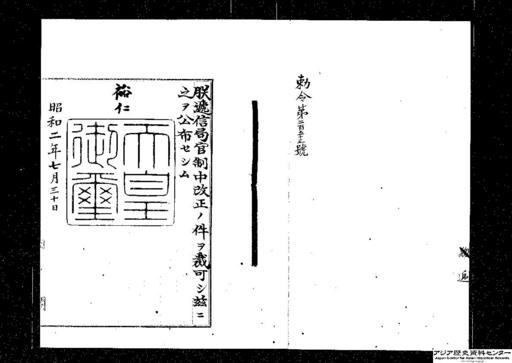 勅令第二百五十三號
朕遞信局官制中改正ノ件ヲ裁可シ茲ニ
之ヲ公布セシム
裕仁
天皇
御璽
昭和二年七月三十日
アジア歴史資料センター
Japan Center for Asian Historical Records